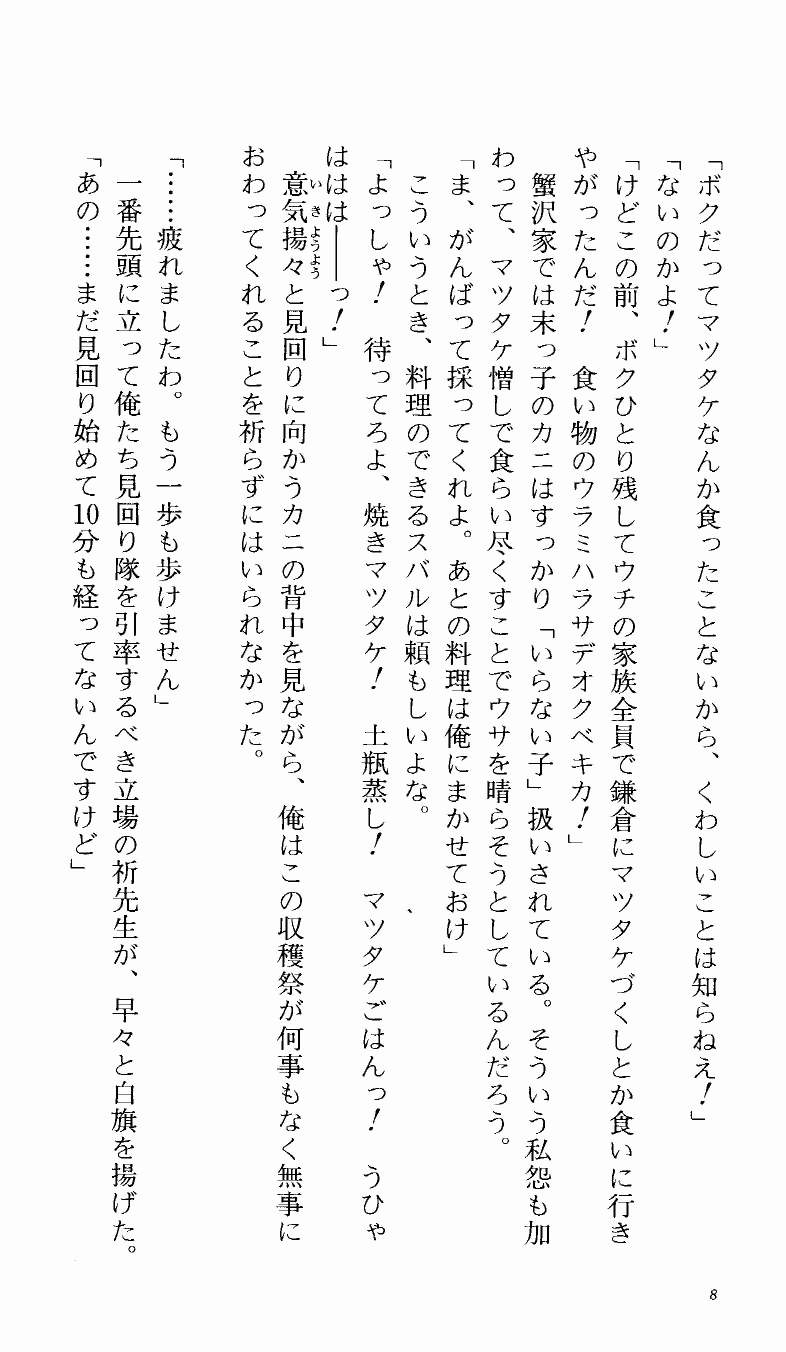 「ボクだってマツタケなんか食ったことないから、くわしいことは知らねえ！」
「ないのかよ！」
「けどこの前、ボクひとり残してウチの家族全員で鎌倉にマツタケづくしとか食いに行き
やがったんだ！　食い物のウラミハラサデオクベキカ！」
　蟹沢家では末っ子のカニはすっかり「いらない子」扱いされている。そういう私怨も加
わって、マツタケ憎しで食らい尽くすことでウサを晴らそうとしているんだろう。
「ま、がんばって採ってくれよ。あとの料理は俺にまかせておけ」
　こういうとき、料理のできるスバルは頼もしいよな。
「よっしゃ！　待ってろよ、焼きマツタケ！　土瓶蒸し！　マツタケごはんっ！　うひゃ
ははは――っ！」
　意気揚々と見回りに向かうカニの背中を見ながら、俺はこの収穫祭が何事もなく無事に
いきようよう
おわってくれることを祈らずにはいられなかった。
「……疲れましたわ。もう一歩も歩けません」
　一番先頭に立って俺たち見回り隊を引率するべき立場の祈先生が、早々と白旗を揚げた。
「あの……まだ見回り始めて10分も経ってないんですけど」
8